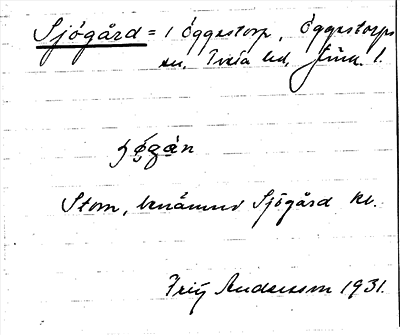 Sjögård = 1 Öggestorp, Öggestorps
sn, Tveta hd, Jönk. l.
Stom, benämnd Sjögård kv.
Fritz Andersson 1931.